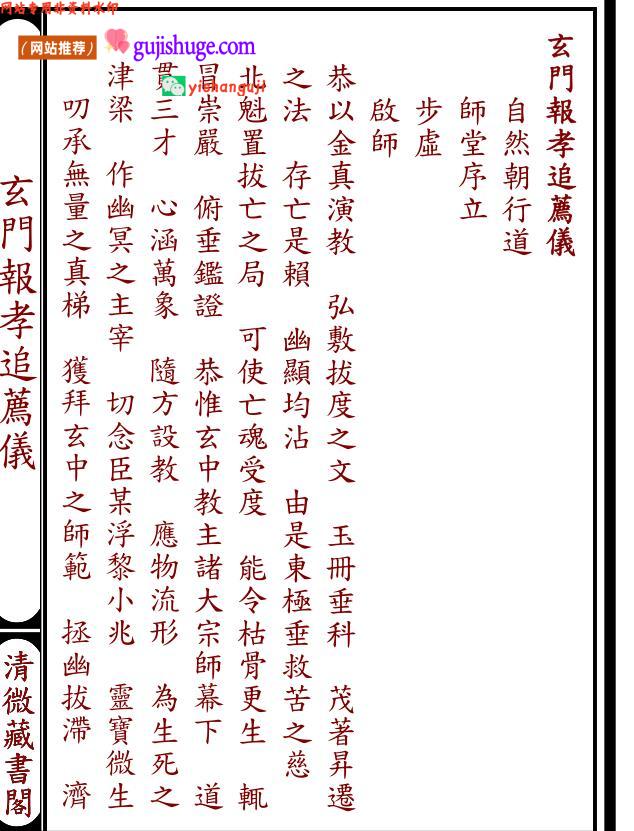 网站专用非资料水印
（网站推荐）
gujishuge.com
yishanguji
玄門報孝追薦儀
自然朝行道
師堂序立
步虛
啟師
恭以金真演教　弘敷拔度之文　玉冊垂科　茂著昇遷
之法　存亡是賴　幽顯均沾　由是東極垂救苦之慈
北魁置拔亡之局　可使亡魂受度　能令枯骨更生　輒
冒崇嚴　俯垂鑑證　恭惟玄中教主諸大宗師幕下　道
貫三才　心涵萬象　隨方設教　應物流形　為生死之
津梁　作幽冥之主宰　切念臣某浮黎小兆　靈寶微生
叨承無量之真梯　獲拜玄中之師範　拯幽拔滯　濟
玄門報孝追薦儀
清微藏書閣